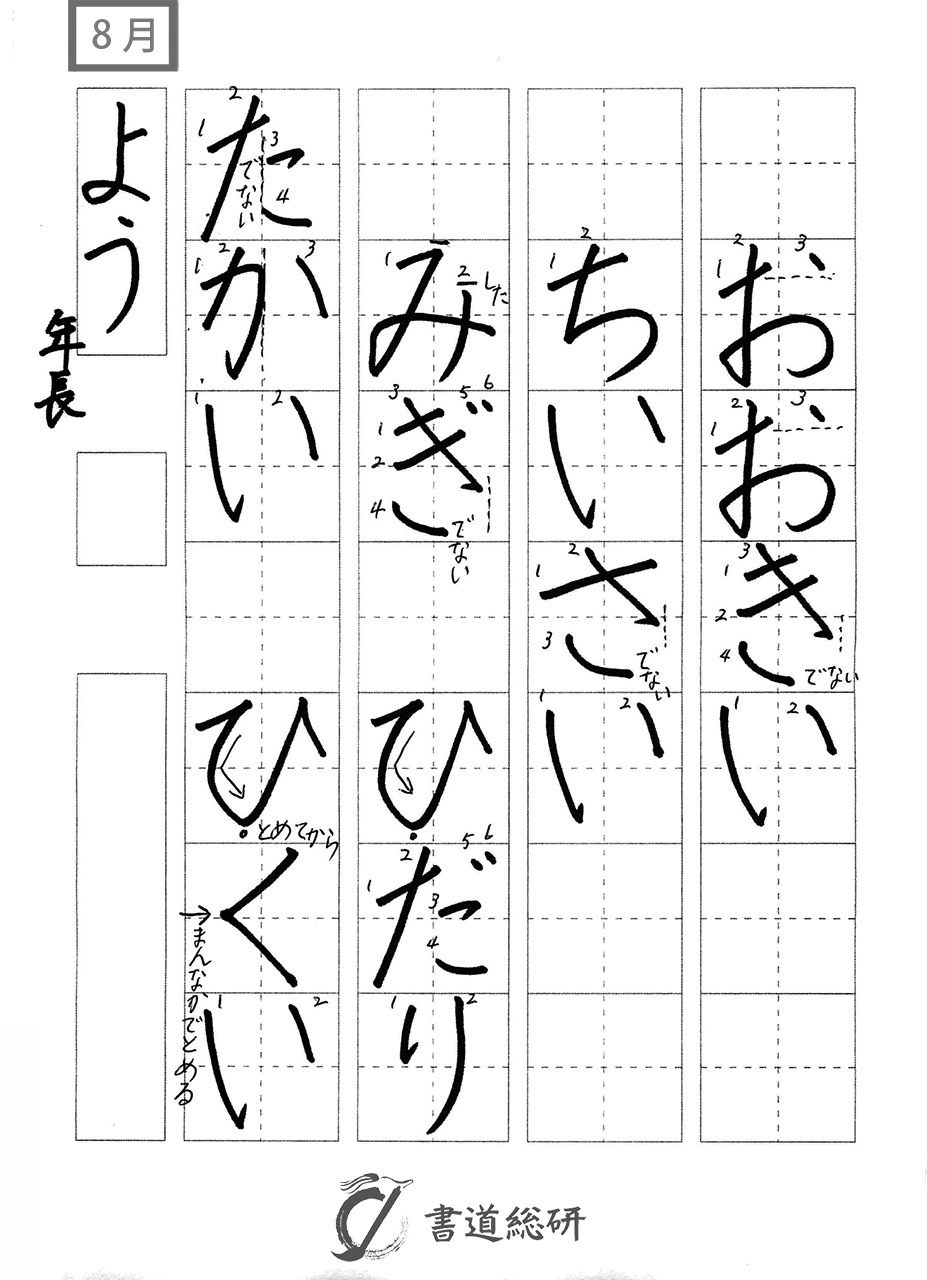 8月
おおきい
ちいさい
みぎ ひだり
たかい ひくい
よう
年長
1
2
3
1
2
3
1
2
3
4
でない
1
2
1
2
1
2
3
でない
1
2
1
2
した
1
2
3
4
5
6
でない
1
2
3
4
5
6
1
2
1
2
3
4
でない
1
2
3
1
2
とめてから
まんなかでとめる
1
2
書道総研